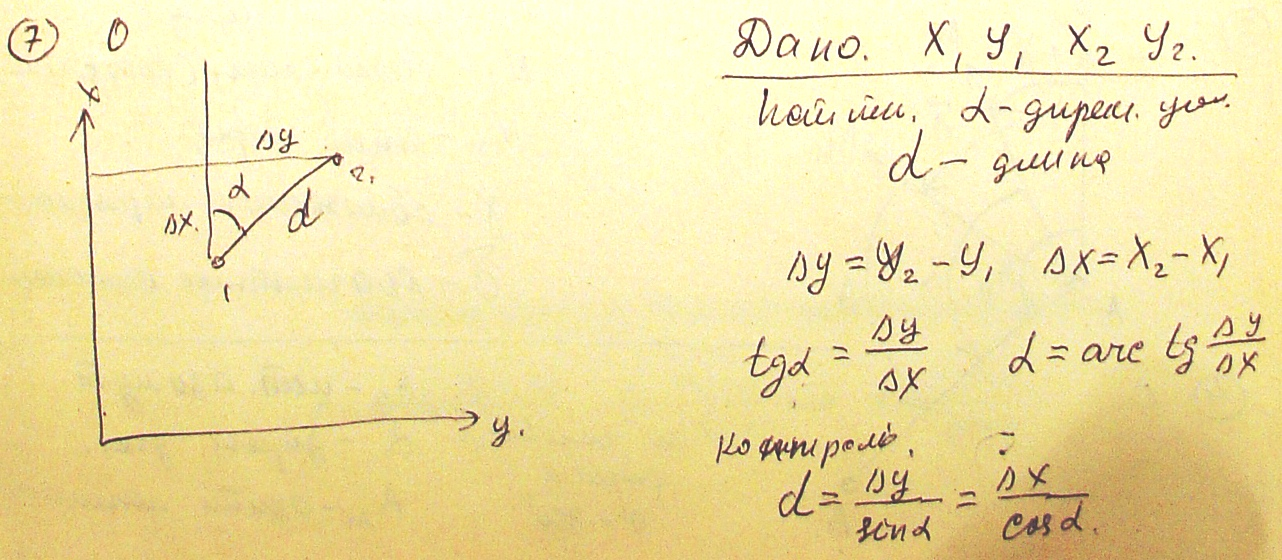 7 0
x
Δy
2.
α
Δx.
d
1
y.
Дано. X₁ Y₁ X₂ Y₂.
Найти. α - дирек. угол.
d - длина
Δy = Y₂ - Y₁ Δx = X₂ - X₁
tgα = Δy/Δx α = arc tg Δy/Δx
контроль.
d = Δy/sinα = Δx/cosα.